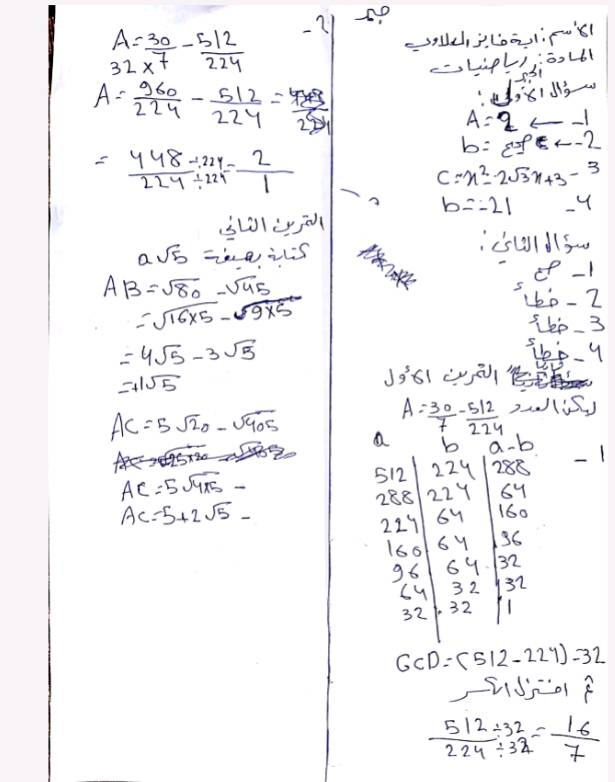 جبر
الأسم: آية فايز العلاوي
المادة: رياضيات
الجبر
سؤال الأول:
1- ← A=2
2- ← b= صحيح C
3- C=x²-2√3x+3
4- b=-21
سؤال الثاني:
1- صح
2- خطأ
3- خطأ
4- خطأ
ثالثاً التمرين الأول
ليكن العدد A=30/7-512/224
1-
a | b | a-b
512 | 224 | 288
288 | 224 | 64
224 | 64 | 160
160 | 64 | 96
96 | 64 | 32
64 | 32 | 32
32 | 32 | 1
GCD=(512-224)=32
ثم اختزل الكسر
512÷32/224÷32=16/7
2-
A=30/7-512/224
32×
A=960/224-512/224=
=448÷224/224÷224=2/1
التمرين الثاني
كتابة بصيغة a√5
AB=√80-√45
=√16×5-√9×5
=4√5-3√5
=+1√5
AC=5√20-√405
AC=5√4×5-
AC=5+2√5-